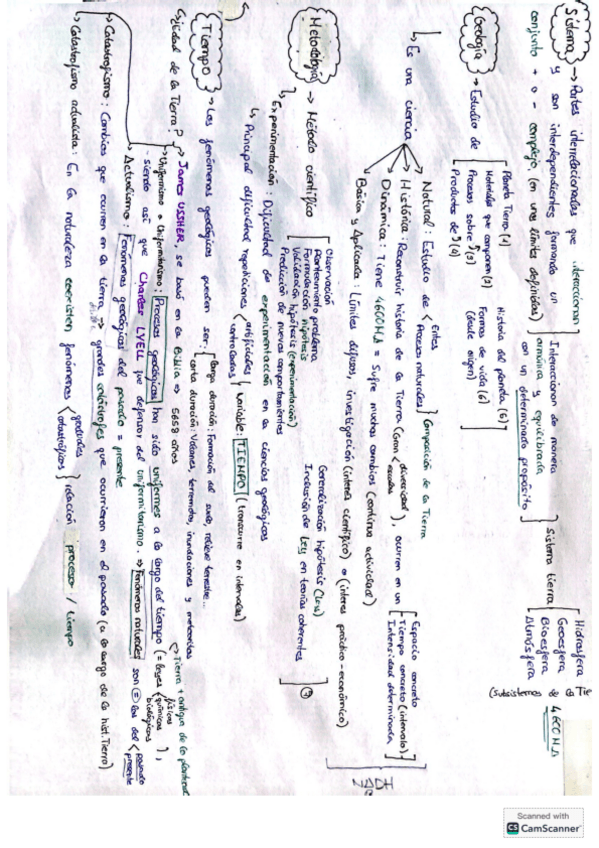 Sistema → Partes interrelacionadas que interaccionan
y son interdependientes formando un
conjunto + o - complejo (en unos límites definidos)
Interaccionan de manera
armónica y equilibrada
con un determinado propósito
Sistema tierra
Hidrosfera
Geosfera
Bioesfera
Atmósfera
(Subsistemas de la Tie
4600 M.A
Geología → Estudio de
Planeta Tierra (1)
Materiales que componen (2)
Procesos sobre (3)
Productos de 3 (4)
Historia del planeta (5)
Formas de vida (6)
(desde origen)
↳ Es una ciencia
Natural: Estudio de < Entes
Procesos naturales
Composición de la Tierra
Histórica: Reconstruir historia de la Tierra (Gran < diversidad
escalas
), ocurren en un
Espacio concreto
Tiempo concreto (intervalo)
Intensidad determinada
Dinámica: Tiene 4600 M.A = Sufre muchos cambios (continua actividad)
Básica y Aplicada: Límites difusos, investigación (interés científico) o (interés práctico-económico)
Metodología → Método científico
Observación
Planteamiento problema
Formulación hipótesis
Validación hipótesis (experimentación)
Predicción de nuevos comportamientos
Generalización hipótesis (Ley)
Inclusión de Ley en teorías coherentes
↳ Experimentación: Dificultad de experimentación en las ciencias geológicas
↳ Principal dificultad repeticiones < artificiales
controladas
Variable: TIEMPO (transcurre en intervalos)
Tiempo → Los fenómenos geológicos pueden ser:
larga duración: Formación del suelo, relieve terrestre...
corta duración: Volcanes, terremotos, inundaciones y meteoritos
¿Edad de la Tierra?
→ James USSHER, se basó en la Biblia ⇒ 5658 años
Tierra + antigua de lo planteado
→ Uniformismo o Uniformitarismo: Procesos geológicos ha sido uniformes a lo largo del tiempo (= leyes < físicas
químicas
biológicas
),
siendo así que Charles LYELL que defensor del uniformitarismo. ⇒ Fenómenos naturales son = los del < pasado
presente
→ Actualismo: Fenómenos geológicos del pasado = presente
↳ Catastrofismo: Cambios que ocurren en la tierra ⇒ grandes catástrofes que ocurrieron en el pasado (a lo largo de la hist. Tierra)
↳ Catastrofismo actualista: En la naturaleza existen fenómenos < graduales
catastróficos
relación procesos / tiempo
Scanned with
CS CamScanner